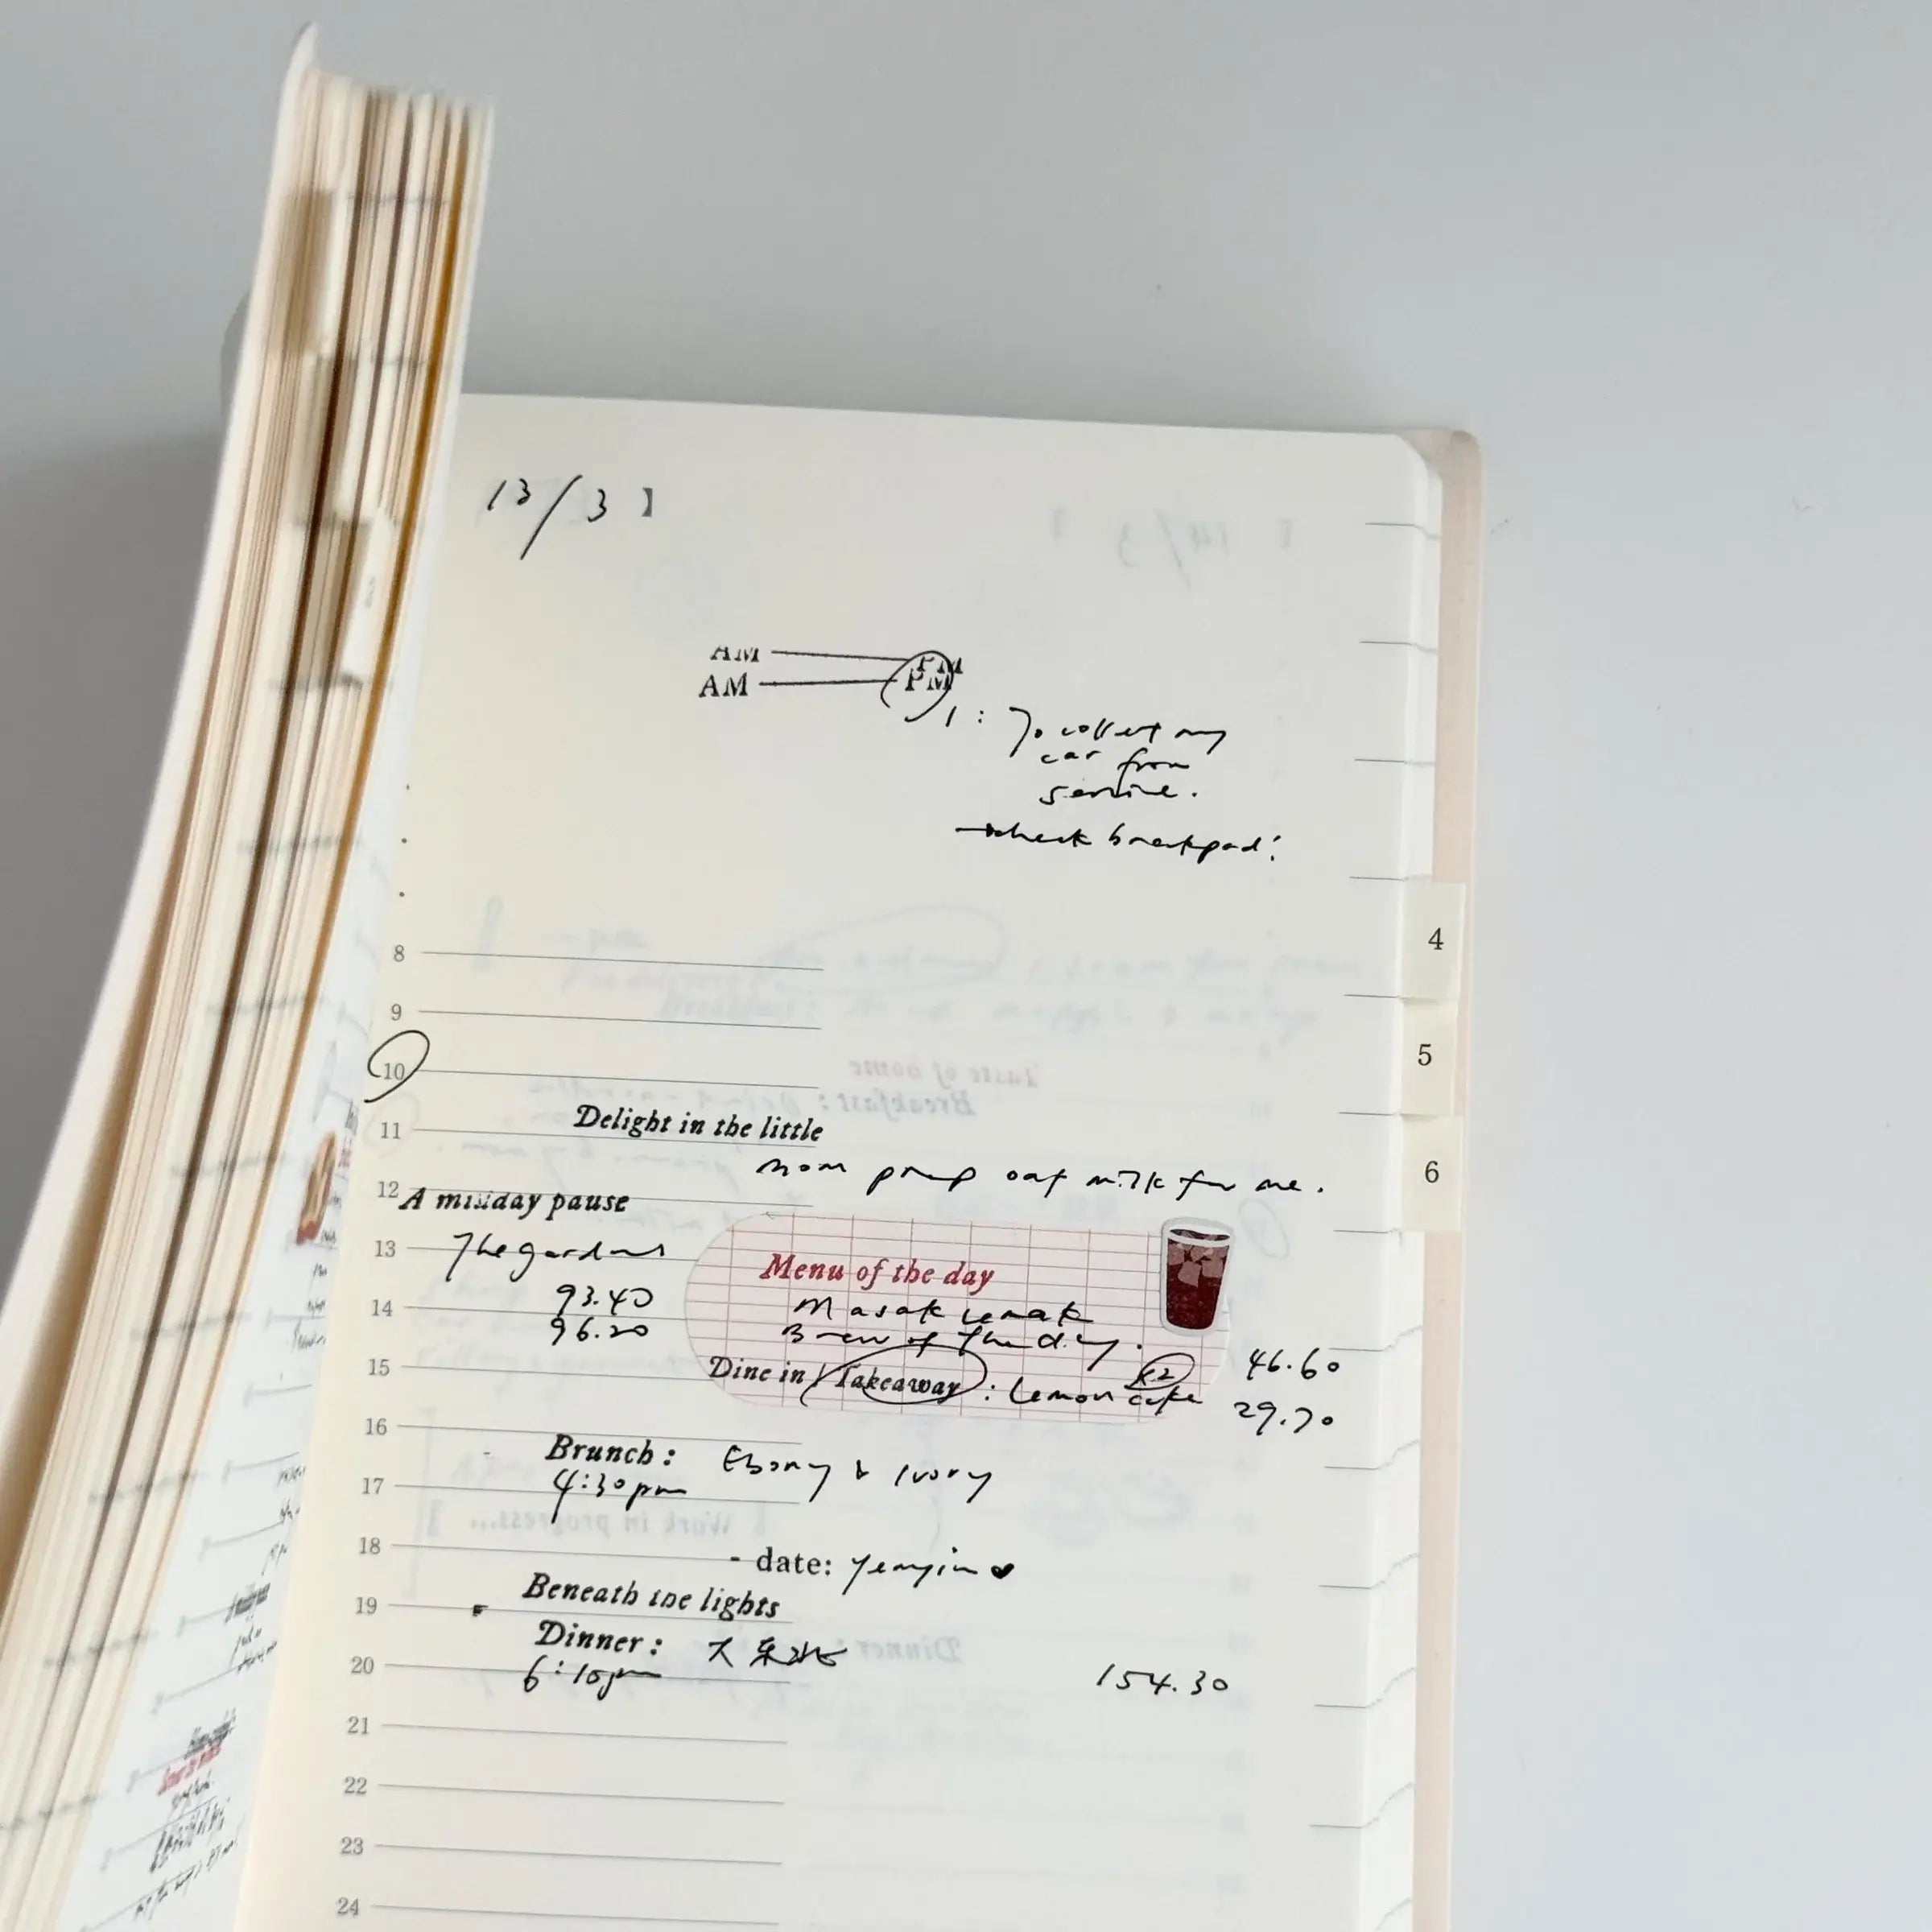 13/3 】
AM PM
AM PM
1 : To collect my
car from
service.
check breakpad!
4
8
9
5
10
Delight in the little
11
mom prep oat milk for me.
6
12 A midday pause
13 The gardens
Menu of the day
93.40
14 Masak Lemak
96.20
Brew of the day.
46.60
15 Dine in / Takeaway : Lemon cake x2
29.70
16
Brunch : Ebony & Ivory
17 4:30pm
18 - date: yenyin ♥
Beneath the lights
19
Dinner : 大东北
20 6:10pm 154.30
21
22
23
24